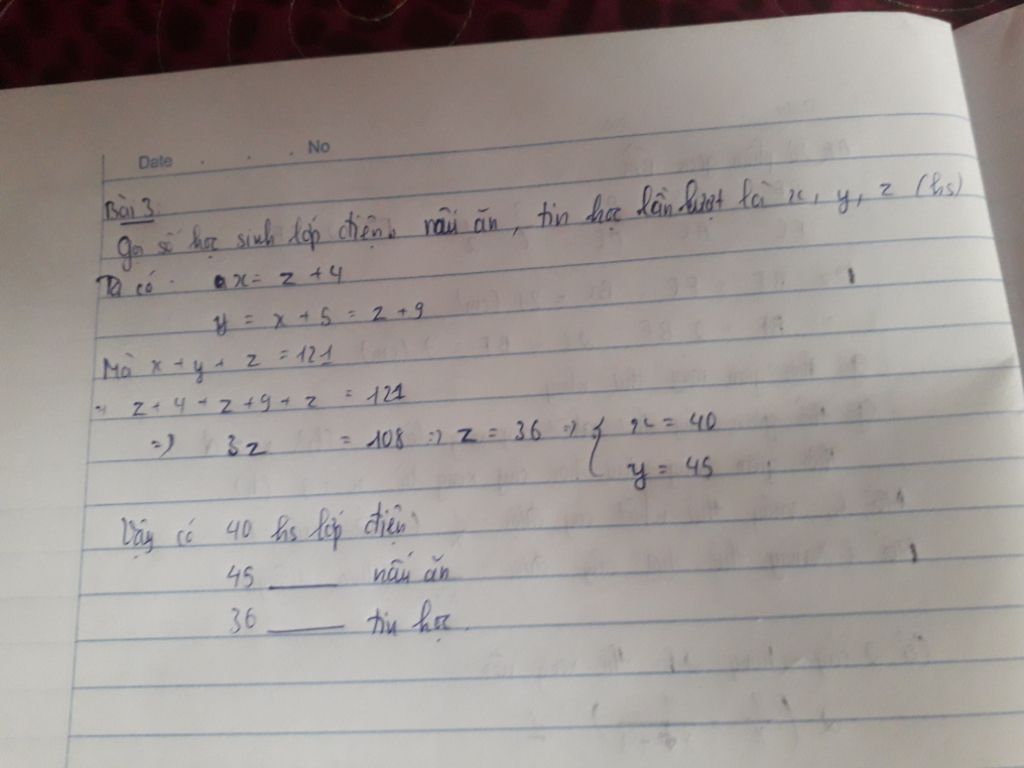 Date . . . No
Bài 3
Gọi số học sinh lớp điện, nấu ăn, tin học lần lượt là x, y, z (hs)
Ta có x = z + 4
y = x + 5 = z + 9
Mà x + y + z = 121
z + 4 + z + 9 + z = 121
=> 3z = 108 => z = 36 => { x = 40
y = 45
Vậy có 40 hs lớp điện
45 ____ nấu ăn
36 ____ tin học.